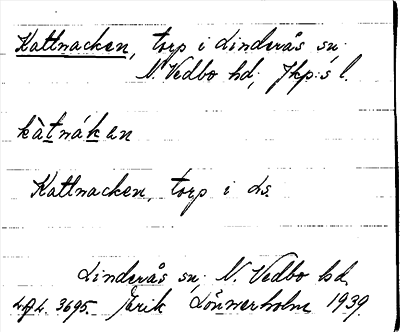 Kattnacken, torp i Linderås sn.
N. Vedbo hd; Jkp:s l.
kàtnákan
Kattnacken, torp i Ls.
Linderås sn; N. Vedbo hd,
3695. Erik Lönnerholm 1939.